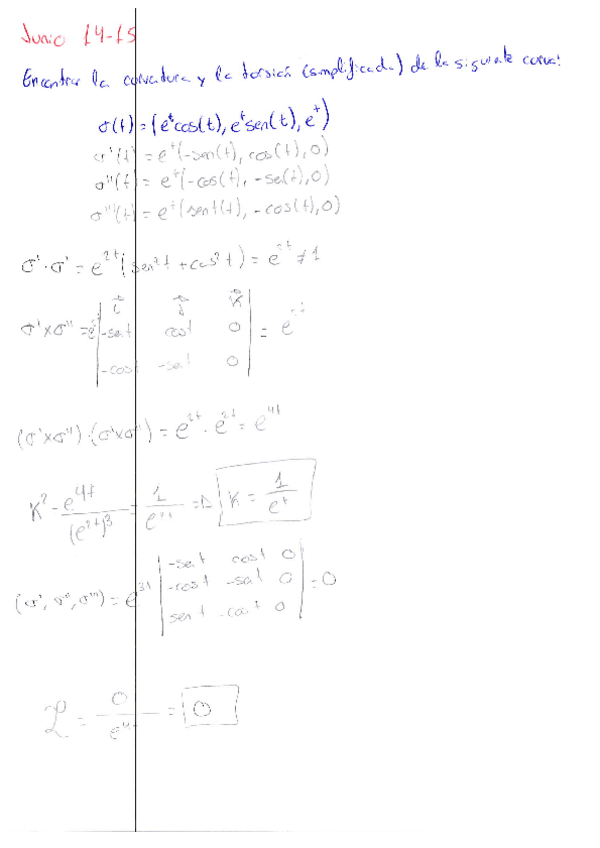 Junio 14-15
Encontrar la curvatura y la torsión (simplificada) de la siguiente curva:
σ(t) = (e^t cos(t), e^t sen(t), e^t)
σ'(t) = e^t(-sen(t), cos(t), 0)
σ''(t) = e^t(-cos(t), -se(t), 0)
σ'''(t) = e^t(sent(t), -cos(t), 0)
σ'·σ' = e^2t (sen²t + cos²t) = e^2t ≠ 1
i j k
σ'xσ'' = e^t |-sat cost 0| = e^2t
-cost -sat 0
(σ'xσ'')·(σ'xσ'') = e^2t · e^2t = e^4t
K² = e^4t / (e^2t)^3 = 1 / e^2t => K = 1 / e^t
-se t cost 0
(σ', σ'', σ''') = e^3t |-cost -sat 0| = 0
sent -cost 0
τ = 0 / e^4t = 0